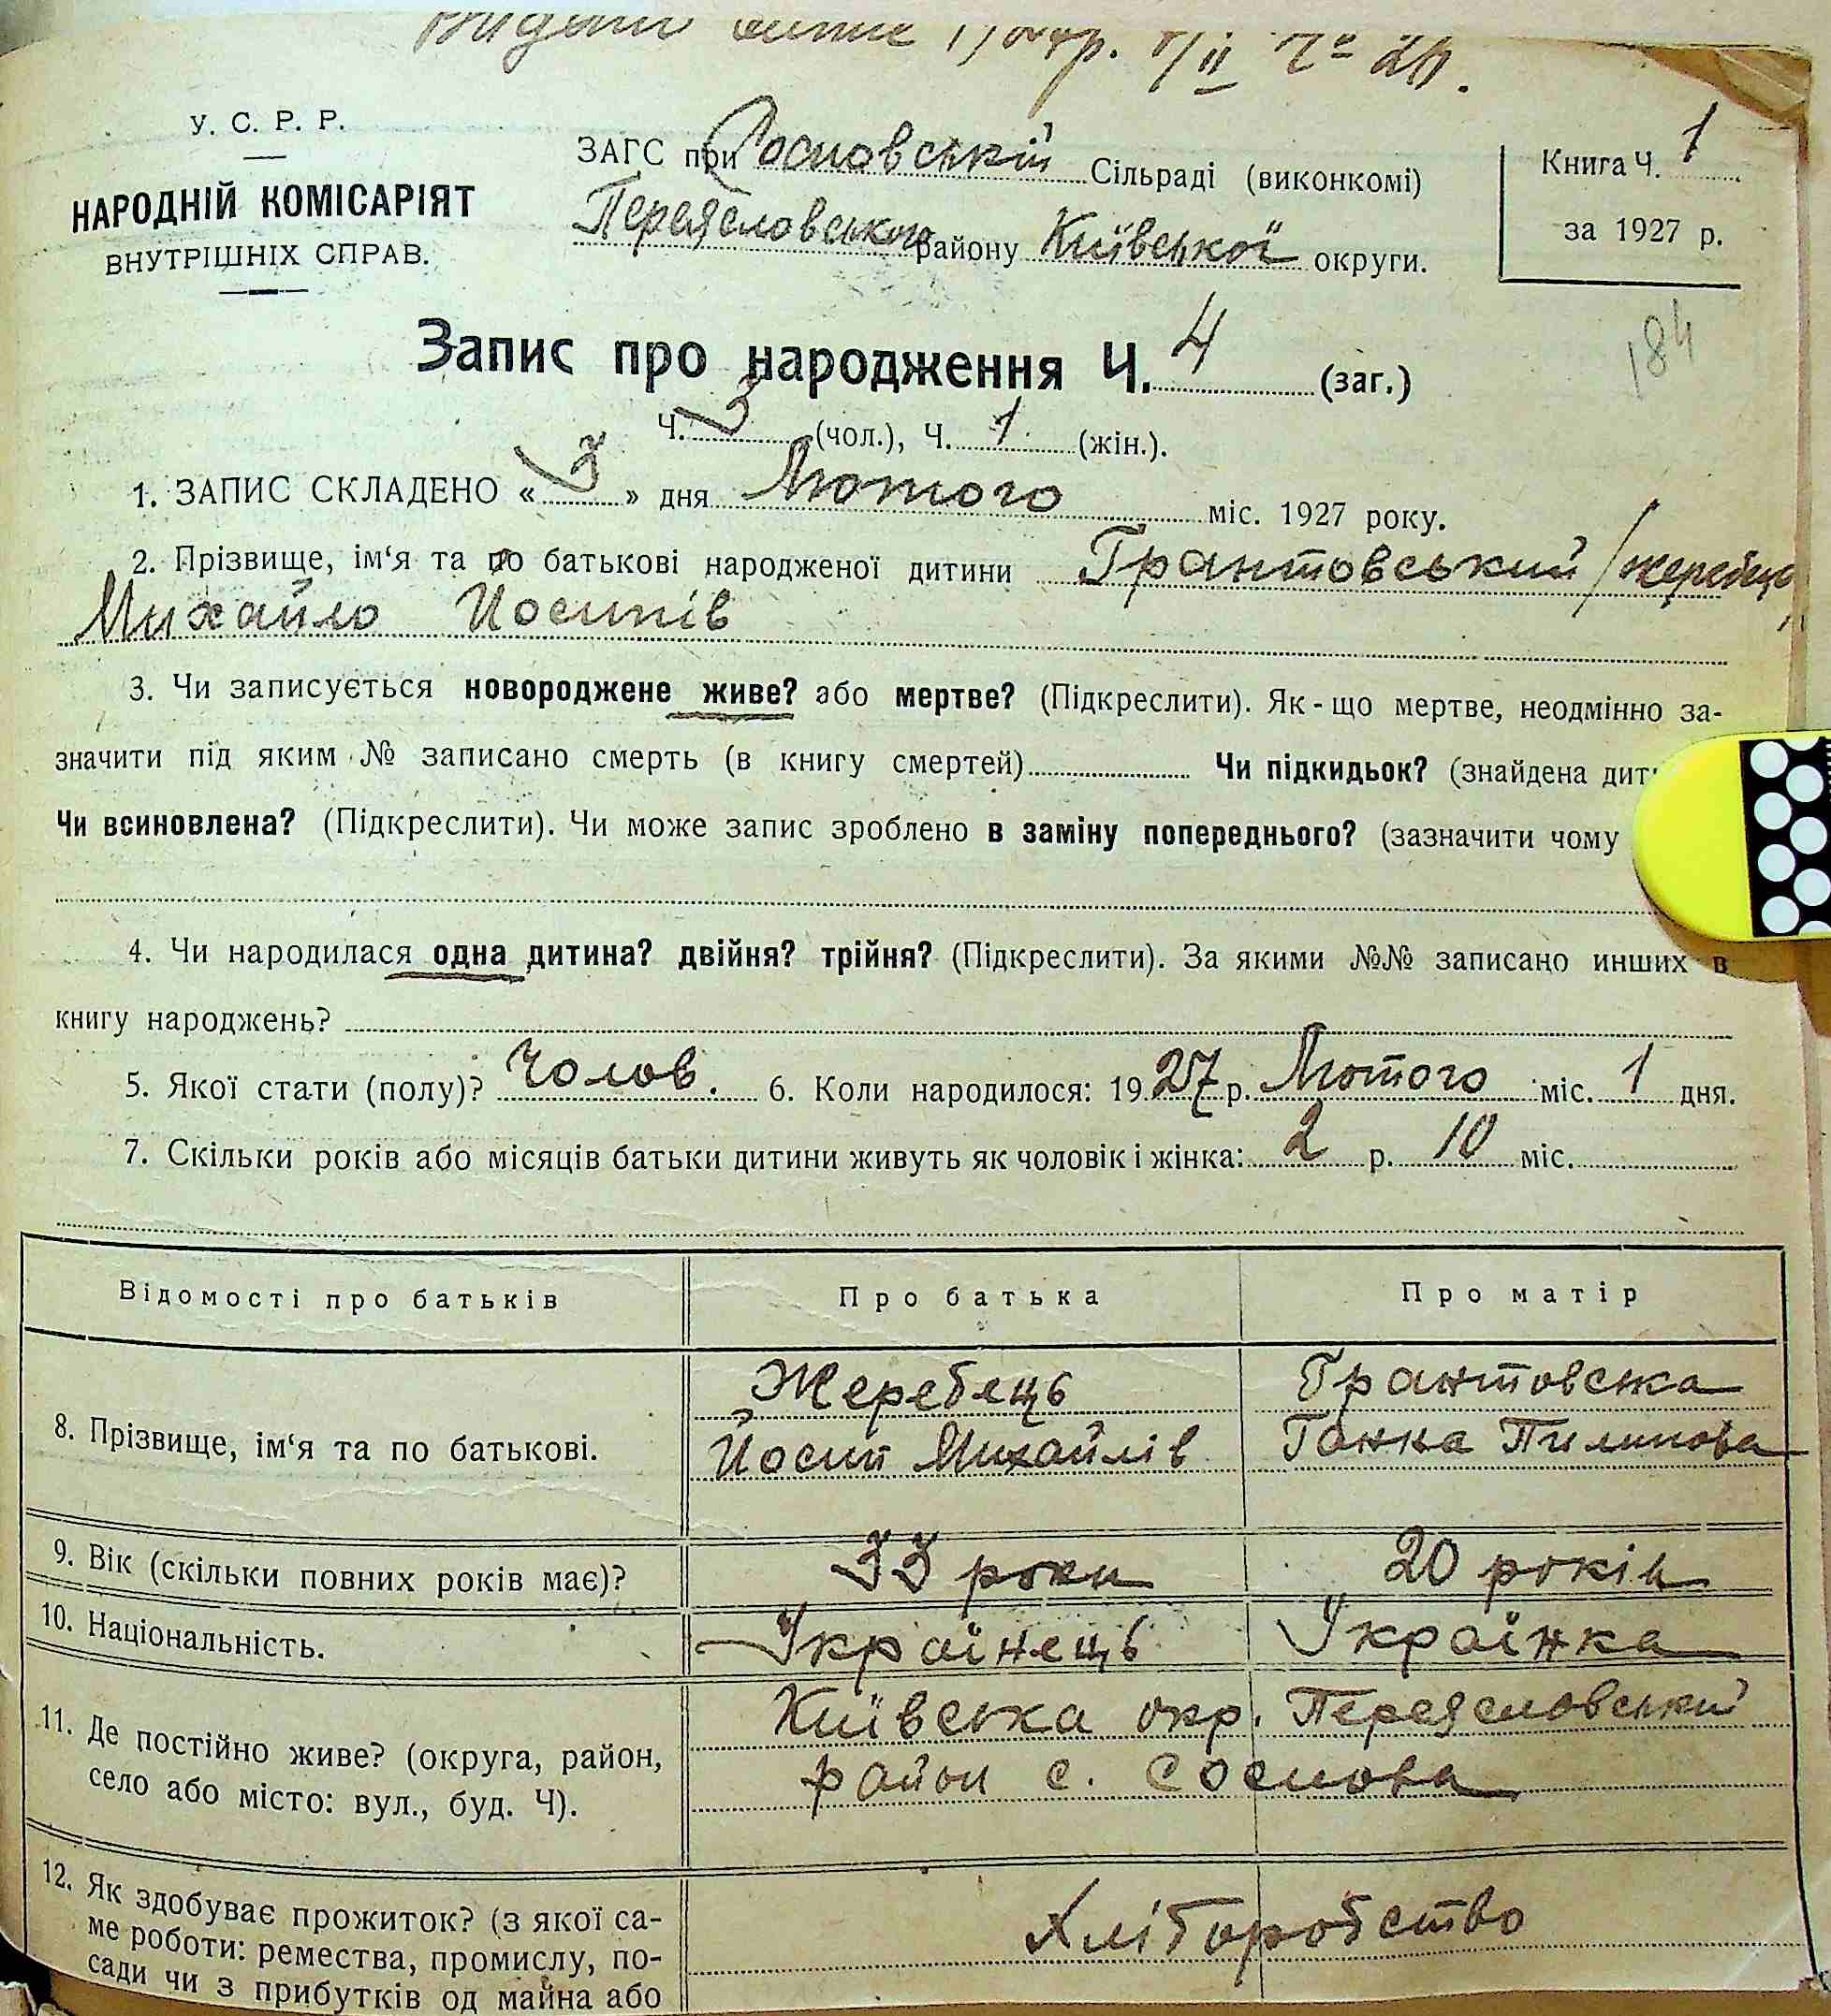 У. С. Р. Р.
НАРОДНІЙ КОМІСАРІЯТ
ВНУТРІШНІХ СПРАВ.
ЗАГС при Сосновській Сільраді (виконкомі)
Переясловського району Київської округи.
Книга Ч. 1
за 1927 р.
184
Запис про народження Ч. 4 (заг.)
Ч. 3 (чол.), Ч. 1 (жін.).
1. ЗАПИС СКЛАДЕНО «3» дня Лютого міс. 1927 року.
2. Прізвище, ім‘я та по батькові народженої дитини Грантовський /жеребець/
Михайло Йосипів
3. Чи записується новороджене живе? або мертве? (Підкреслити). Як-що мертве, неодмінно за-
значити під яким № записано смерть (в книгу смертей) Чи підкидьок? (знайдена дит
Чи всиновлена? (Підкреслити). Чи може запис зроблено в заміну попереднього? (зазначити чому
4. Чи народилася одна дитина? двійня? трійня? (Підкреслити). За якими №№ записано инших в
книгу народжень?
5. Якої стати (полу)? Чолов. 6. Коли народилося: 1927 р. Лютого міс. 1 дня.
7. Скільки років або місяців батьки дитини живуть як чоловік і жінка: 2 р. 10 міс.
Відомості про батьків Про батька Про матір
8. Прізвище, ім‘я та по батькові.
Жеребець
Йосип Михайлів
Грантовська
Ганна Пилипова
9. Вік (скільки повних років має)? 33 роки 20 років
10. Національність. Українець Українка
11. Де постійно живе? (округа, район,
село або місто: вул., буд. Ч).
Київська окр. Переясловський
район с. Соснова
12. Як здобуває прожиток? (з якої са-
ме роботи: ремества, промислу, по-
сади чи з прибутків од майна або
Хліборобство